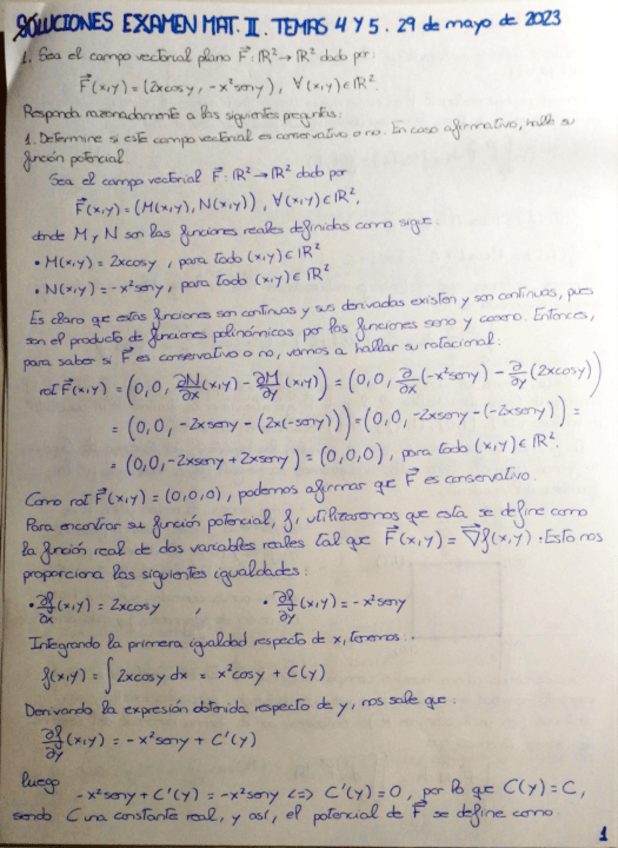 SOLUCIONES EXAMEN MAT. II. TEMAS 4 Y 5. 29 de mayo de 2023
1. Sea el campo vectorial plano F⃗: ℝ² → ℝ² dado por:
F⃗(x,y) = (2xcosy, -x²seny), ∀(x,y) ∈ ℝ².
Responda razonadamente a las siguientes preguntas:
1. Determine si este campo vectorial es conservativo o no. En caso afirmativo, halle su
función potencial.
Sea el campo vectorial F⃗: ℝ² → ℝ² dado por
F⃗(x,y) = (M(x,y), N(x,y)), ∀(x,y) ∈ ℝ²,
donde M y N son las funciones reales definidas como sigue:
• M(x,y) = 2xcosy, para todo (x,y) ∈ ℝ²
• N(x,y) = -x²seny, para todo (x,y) ∈ ℝ²
Es claro que estas funciones son continuas y sus derivadas existen y son continuas, pues
son el producto de funciones polinómicas por las funciones seno y coseno. Entonces,
para saber si F⃗ es conservativo o no, vamos a hallar su rotacional:
rot F⃗(x,y) = (0, 0, ∂N/∂x (x,y) - ∂M/∂y (x,y)) = (0, 0, ∂/∂x (-x²seny) - ∂/∂y (2xcosy))
= (0, 0, -2xseny - (2x(-seny))) = (0, 0, -2xseny - (-2xseny)) =
= (0, 0, -2xseny + 2xseny) = (0, 0, 0), para todo (x,y) ∈ ℝ².
Como rot F⃗(x,y) = (0,0,0), podemos afirmar que F⃗ es conservativo.
Para encontrar su función potencial, f, utilizaremos que esta se define como
la función real de dos variables reales tal que F⃗(x,y) = ∇⃗f(x,y). Esto nos
proporciona las siguientes igualdades:
• ∂f/∂x (x,y) = 2xcosy , • ∂f/∂y (x,y) = -x²seny
Integrando la primera igualdad respecto de x, tenemos:
f(x,y) = ∫ 2xcosy dx = x²cosy + C(y)
Derivando la expresión obtenida respecto de y, nos sale que:
∂f/∂y (x,y) = -x²seny + C'(y)
luego
-x²seny + C'(y) = -x²seny <=> C'(y) = 0, por lo que C(y) = C,
siendo C una constante real, y así, el potencial de F⃗ se define como
1